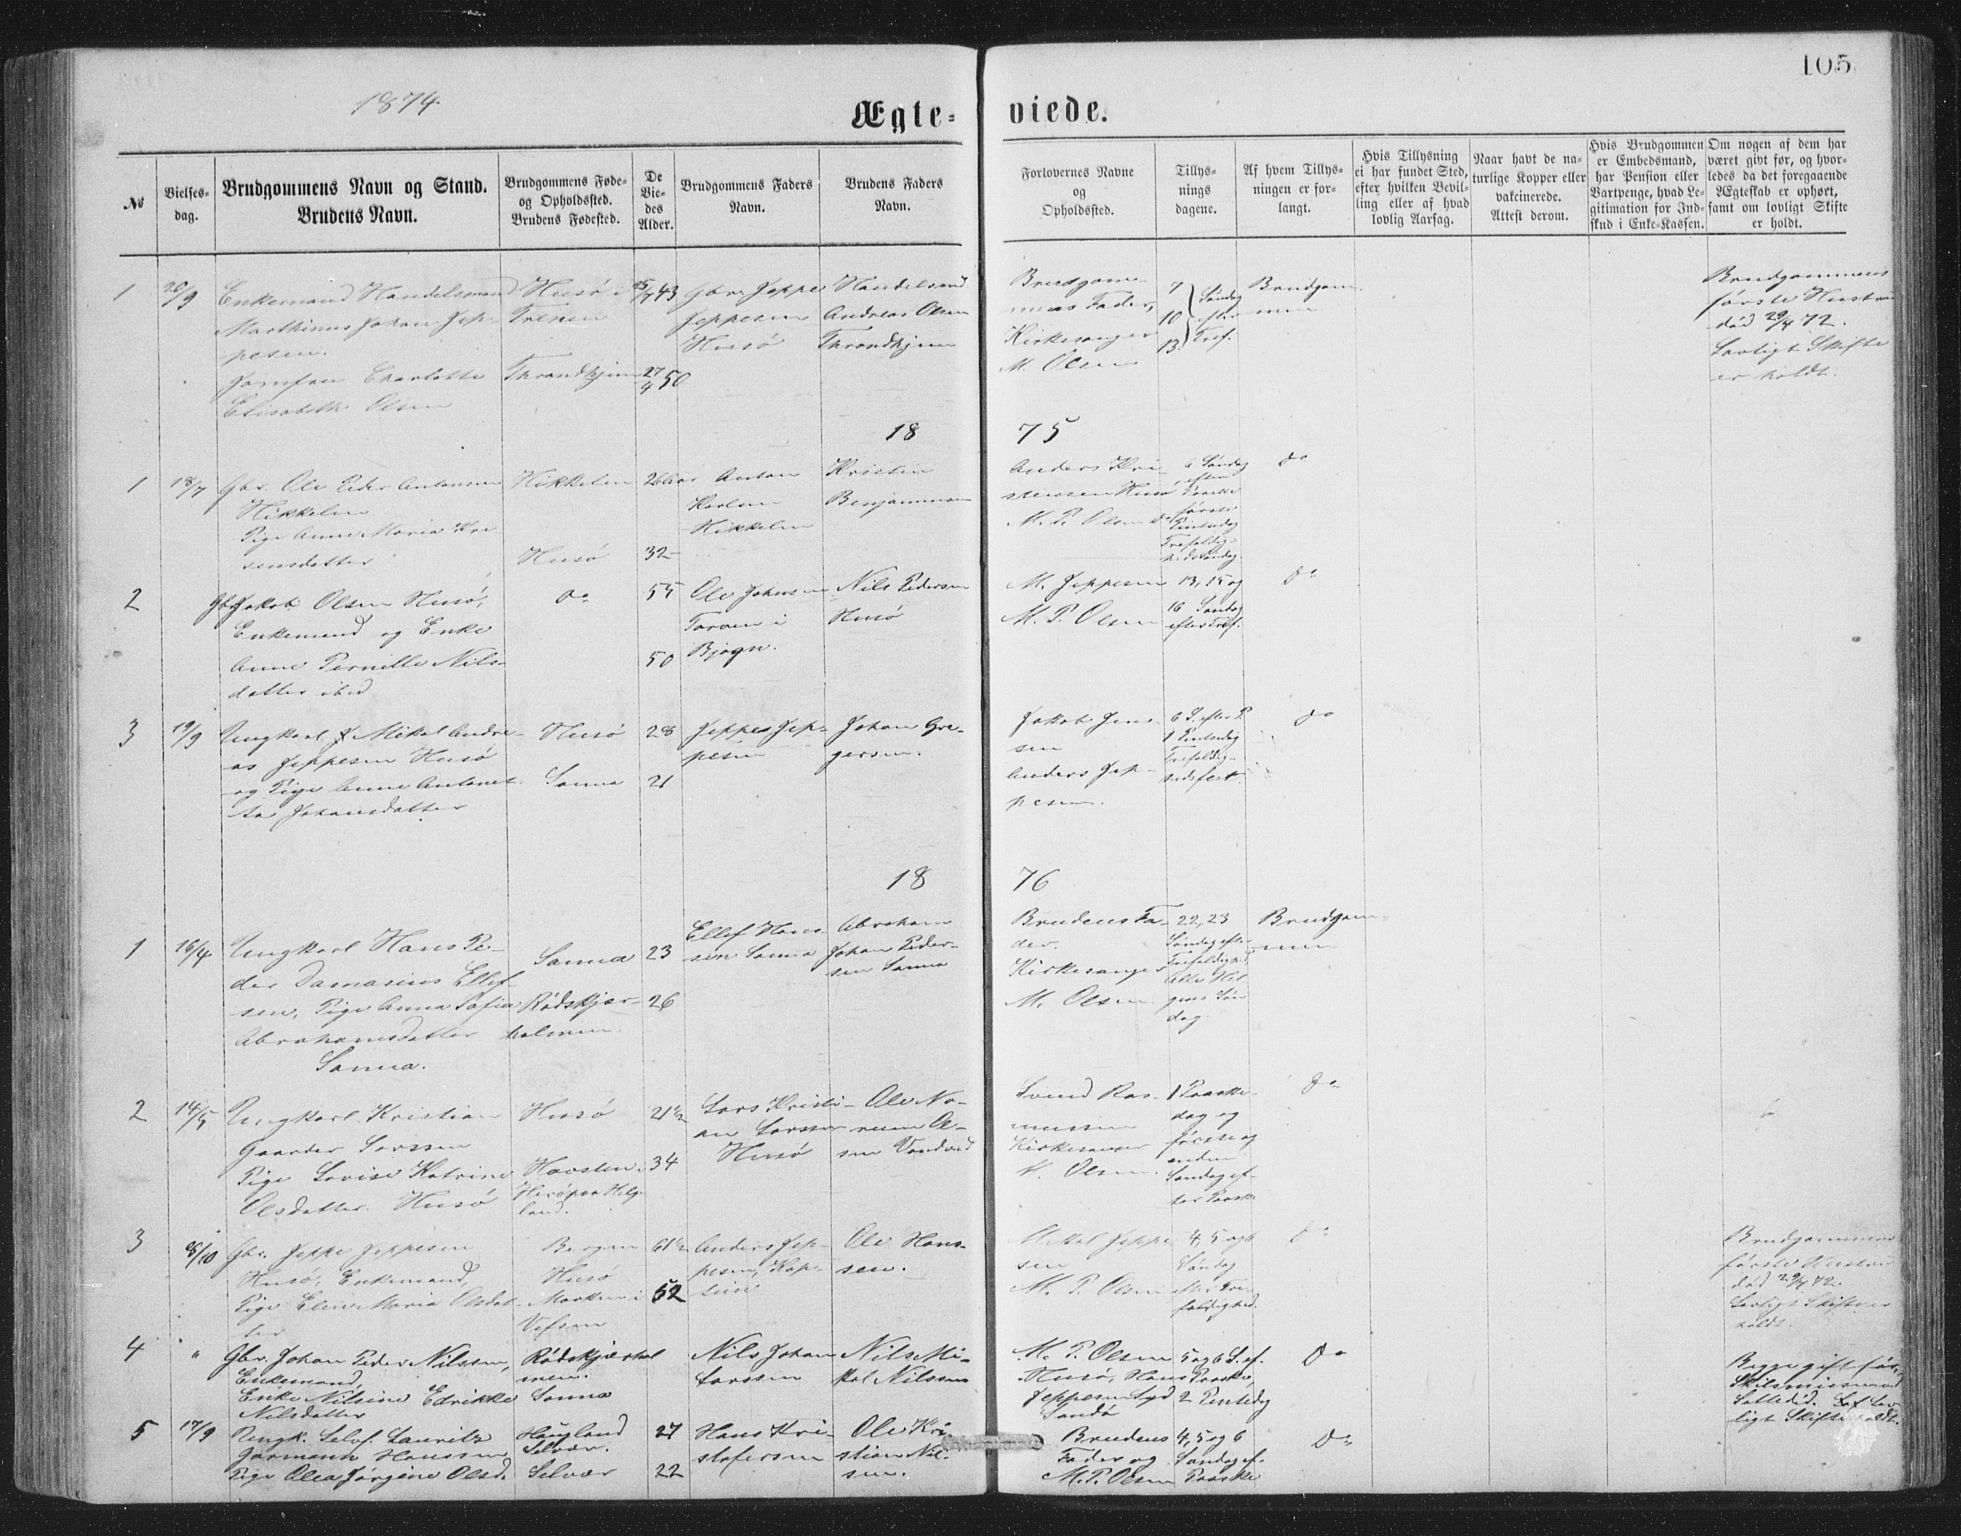 105
1874
Ægte-
viede.
No
Vielses-
dag.
Brudgommens Navn og Stand.
Brudens Navn.
Brudgommens Føde-
og Opholdssted.
Brudens Fødested.
De
Vie-
des
Alder.
Brudgommens Faders
Navn.
Brudens Faders
Navn.
Forlovernes Navne
og
Opholdssted.
Tillys-
nings
dagene.
Af hvem Tillys-
ningen er for-
langt.
Hvis Tillysning
ei har fundet Sted,
efter hvilken Bevil-
ling eller af hvad
lovlig Aarsag.
Naar havt de na-
turlige Kopper eller
vakcinerede.
Attest derom.
Hvis Brudgommen
er Embedsmand,
har Pension eller
Vartpenge, hvad Le-
gitimation for Ind-
skud i Enke-Kassen.
Om nogen af dem har
været givt før, og hvor-
ledes da det foregaaende
Ægteskab er ophørt,
samt om lovligt Skifte
er holdt.
1
20/9
Enkemand Handelsmand
Marthinus Johan Jep-
pesen.
Jomfru Charlotte
Elisabeth Olsen
Husö i
Trenen
Throndhjem
43
27/9 50
Gbr. Jeppe
Jeppesen
Husö
Handelsmd
Andreas Olsen
Throndhjem
Brudgom-
mens Fader,
Kirkesanger
M. Olsen
7
10
13
Söndag
efter
Tref.
Brudgom-
men
Brudgommens
förste Hustru
död 29/4 72.
Lovligt Skifte
er holdt.
18
75
1
18/7
Gbr. Ole Peder Antonsen
Hikkelen
Pige Anne Maria Kri-
sensdatter
Hikkelen
Husö
26
32
Anton
Karlsen
Hikkelen
Kristen
Benjaminsen
Anders Kri-
stensen Husö
M. P. Olsen do
6 Söndag
efter
Paaske
förste
Pintsedag
Trefoldig-
hedssöndag.
do
2
Gbr. Jakob Olsen Husö,
Enkemand og Enke
Anne Pernille Nils-
datter ibid
do
55
50
Ole Johnsen
i
Bjøgn.
Nils Pedersen
Husö
M. Jeppesen
M. P. Olsen
13, 15 og
16 Söndag
efter Tref.
do
3
19/9
Ungkarl Mikal Andre-
as Jeppesen Husö
og Pige Anne Antonet-
ta Johansdatter
Husö
Sanna
28
21
Jeppe Jep-
pesen
Johan Gre-
gersen.
Jakob Jen-
sen
Anders Jep-
pesen.
6 S. efter P.
1 Pintsedag
Trefoldig-
hedsfest.
do
18
76
1
16/4
Ungkarl Hans Pe-
der Damasius Ellef-
sen, Pige Anna Sofia
Abrahamsdatter
Sanna.
Sanna
Rödskjær-
holmen.
23
26
Ellef Han-
sen Sanna
Abraham
Johan Peder-
sen Sanna
Brudens Fa-
der.
Kirkesanger
M. Olsen
22, 23
Söndag efter
Trefoldighed
Alle Hel-
gens Sön-
dag.
Brudgom-
men
2
14/5
Ungkarl Kristian
Gaarder Larssen
Pige Lovise Katrine
Olsdatter Husö
Husö
Havsten i
Heröpaa Helge-
land.
21 1/2
34
Lars Kristi-
an Larssen
Husö
Ole No-
rum Ol-
sen Vandved
Svend Ras-
mussen
Kirkesanger
M. Olsen.
1 Paaske-
dag og
förste og
anden
Söndag ef-
ter Paaske
do
3
8/10
Gbr. Jeppe Jeppesen
Husö, Enkemand,
Pige Elen Maria Olsdat-
ter
Bergen
Husö
Marken i
Vefsen
61 1/2
52
Anders Jep-
pesen, Kap-
tein
Ole Hans-
sen.
Mikal Jeppe
sen
M. P. Olsen
4, 5 og 6
Söndag
efter Tre-
foldighed.
do
Brudgommens
förste Hustru
död 29/4 72.
Lovligt Skifte er
holdt.
4
"
Gbr. Johan Peder Nilssen,
Enkemand,
Enke Nilsine Edrikke
Nilsdatter
Rödskjærhol
men.
Sanna
Nils Johan
Larssen
Nils Mi-
kal Nilssen
M. P. Olsen
Husö, Hans
Jeppesen Syd
Sandö
5 og 6 S. ef.
Paaske,
2 Pintsedag
do
Begge gift för,
ligt Skifte holdt.
5
17/9
Ungk. Selvf. Lauritz
Gormann Hanssen
Pige Olea Jörgine Olsd.
Haugland
Selvær.
Selvær
27
22
Hans Kri-
stofersen
Ole Kri-
stian Nil-
sen.
Brudens
Fader og
M. P. Olsen
4, 5 og 6
Söndag ef-
Paaske
do